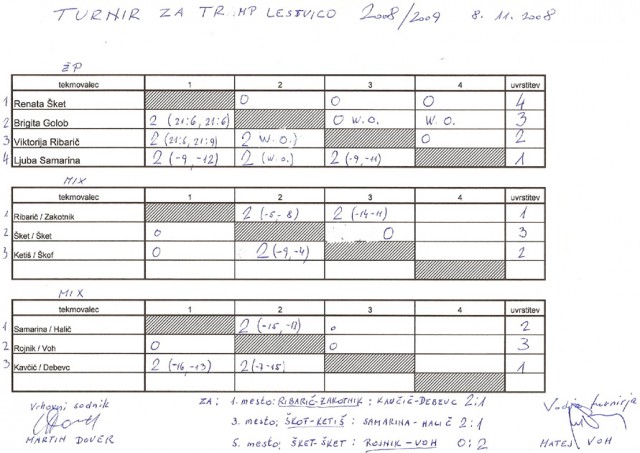 TURNIR ZA TRIMP LESTVICO 2008/2009 8. 11. 2008
ŽP
tekmovalec 1 2 3 4 uvrstitev
1 Renata Šket 0 0 0 4
2 Brigita Golob 2 (21:6, 21:6) 0 W.O. W.O. 3
3 Viktorija Ribarič 2 (21:6, 21:9) 2 W.O.) 0 2
4 Ljuba Samarina 2 (-9, -12) 2 (W.O.) 2 (-9, -11) 1
MIX
tekmovalec 1 2 3 4 uvrstitev
1 Ribarič / Zakotnik 2 (-5, -8) 2 (-14 -11) 1
2 Šket / Šket 0 0 3
3 Ketiš / Škof 0 2 (-9, -4) 2
MIX
tekmovalec 1 2 3 4 uvrstitev
1 Samarina / Halič 2 (-15, -17) 0 2
2 Rojnik / Voh 0 0 3
3 Kavčič / Debevc 2 (-16, -13) 2 (-7 -15) 1
ZA; 1. mesto; RIBARIČ-ZAKOTNIK : KAVČIČ-DEBEVC 2:1
Vrhovni sodnik
Vodja turnirja
3. mesto; ŠKOT-KETIŠ : SAMARINA-HALIČ 2:1
MARTIN DOVER
5. mesto; ŠKET-ŠKET : ROJNIK-VOH 0:2
MATEJ VOH